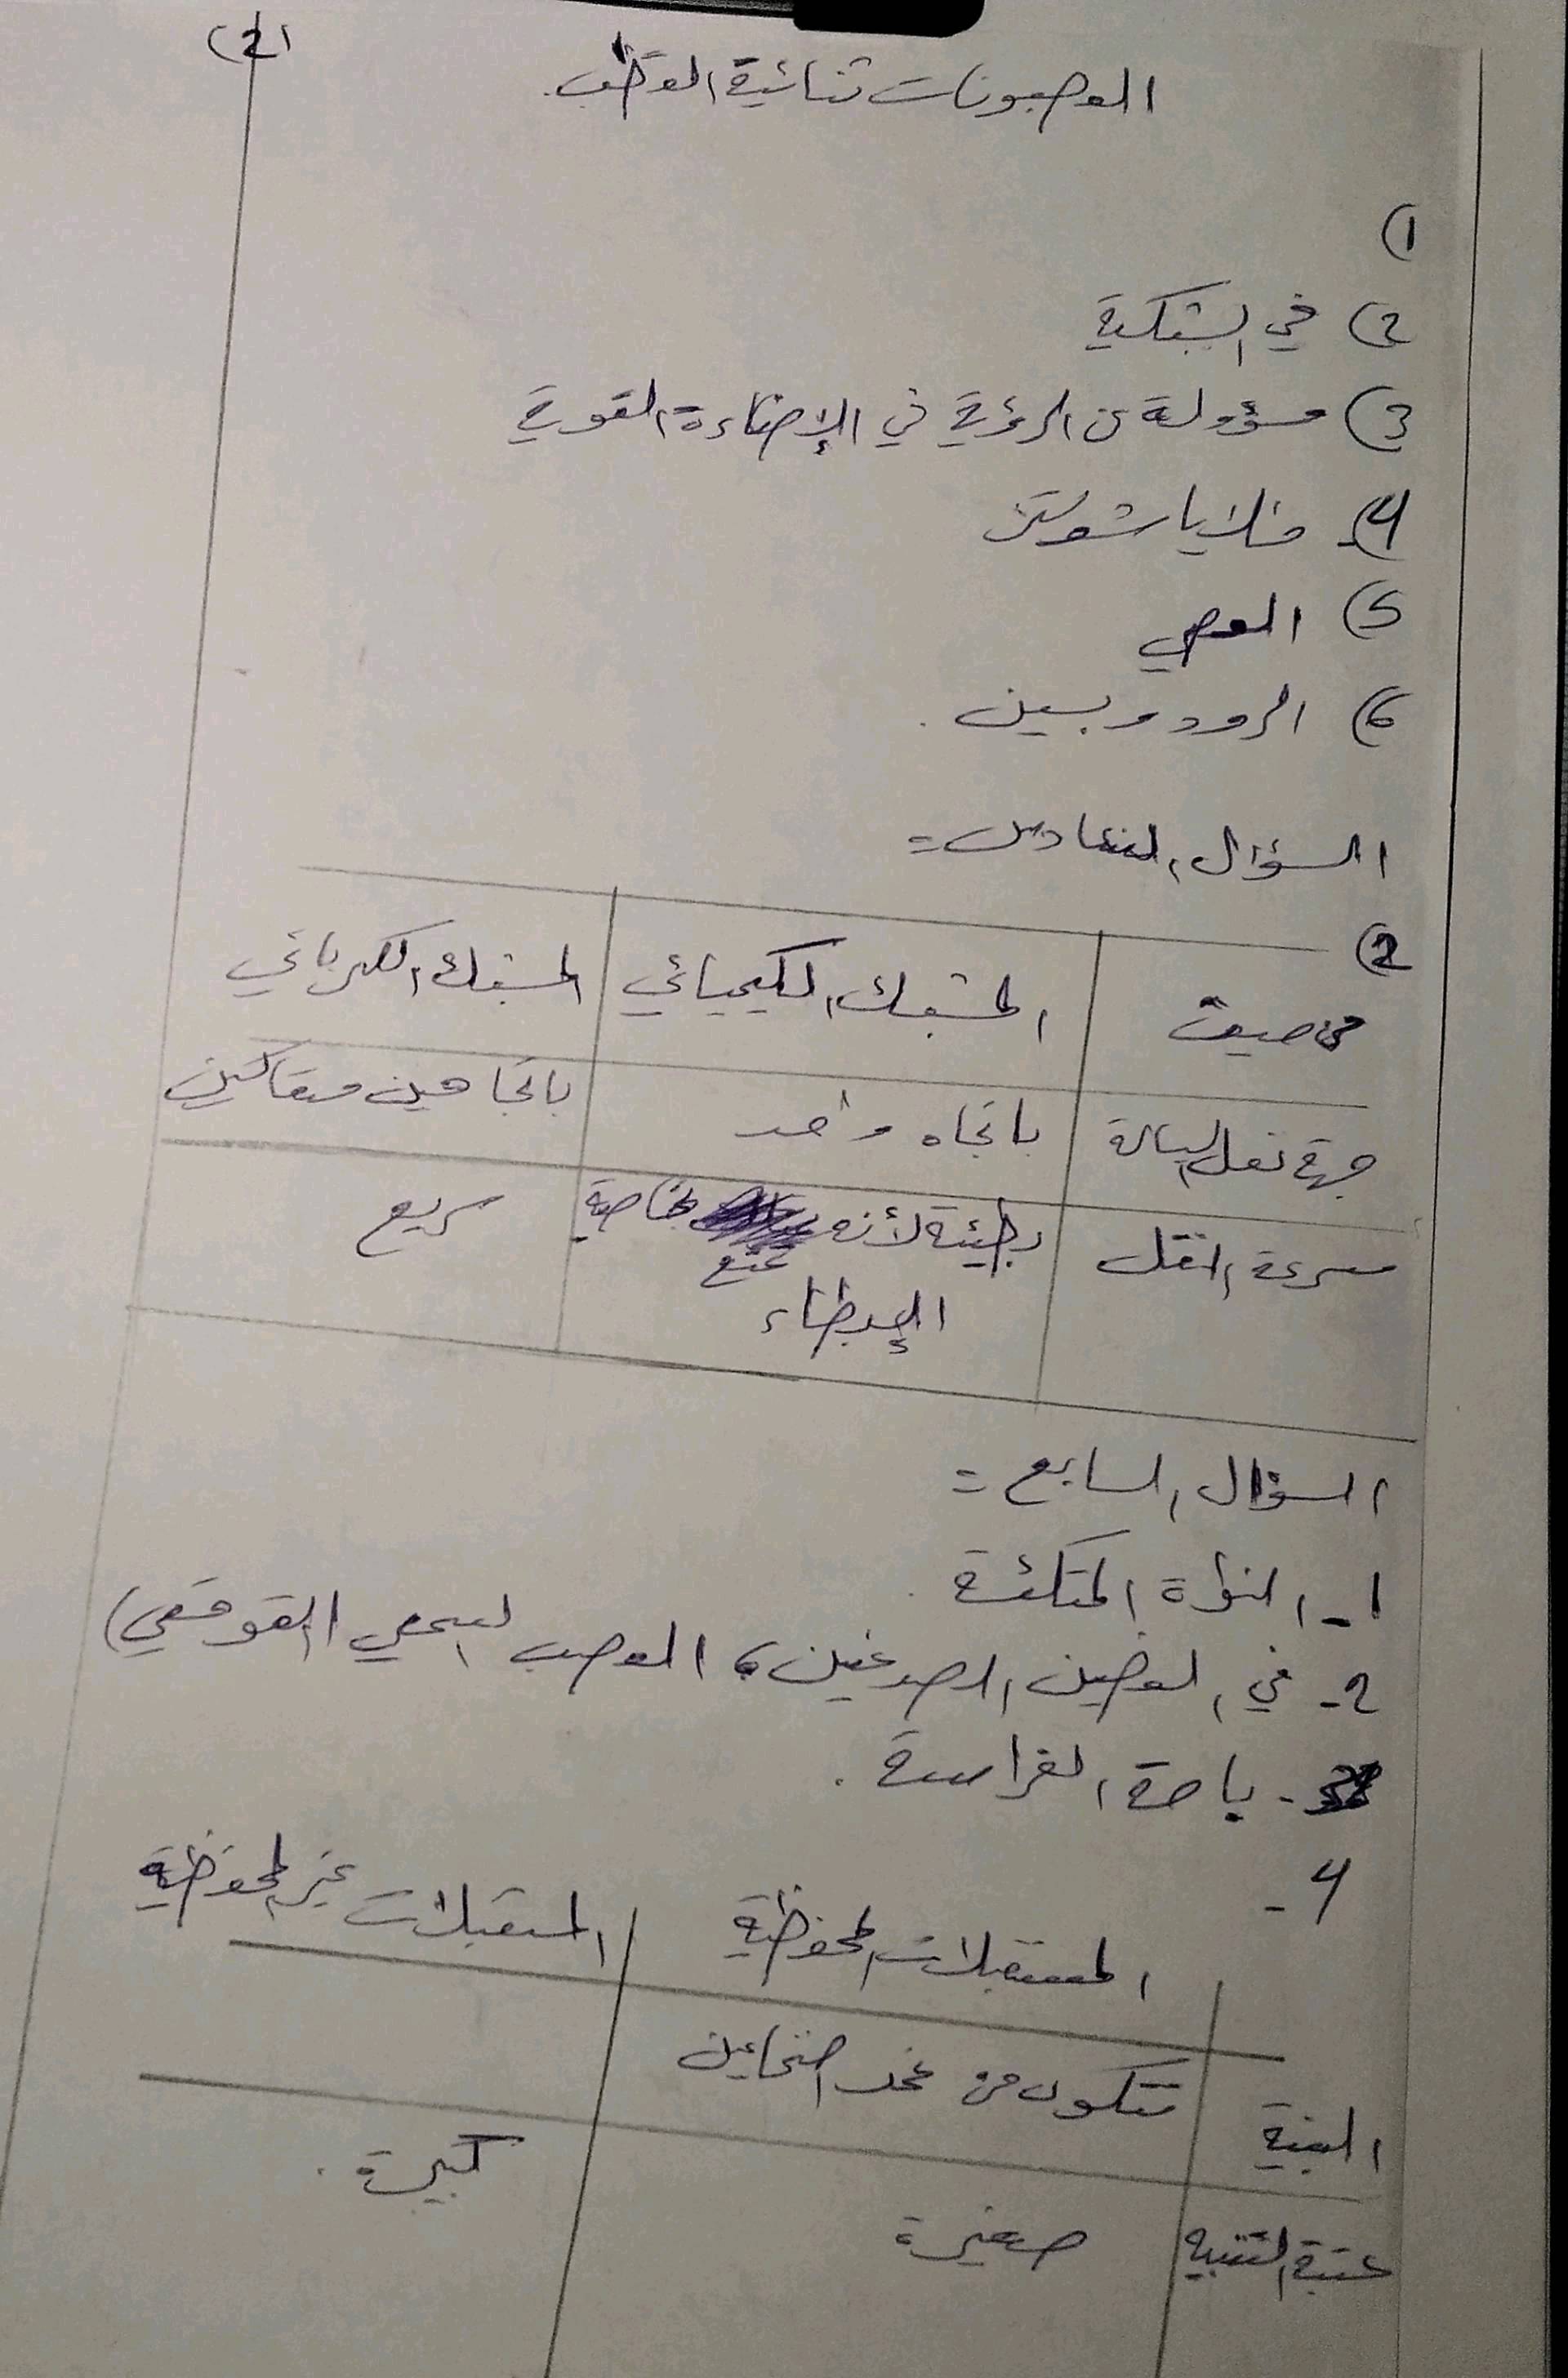 (2)
العصبونات ثنائية القطب.
1)
2) في الشبكية
3) مسؤولة عن الرؤية في الإضاءة القوية
4) خلايا شوان
5) العصي
6) الرودوبسين.
السؤال السادس =
2)
من حيث | المشبك الكيميائي | المشبك الكهربائي
جهة نقل السيالة | باتجاه واحد | باتجاهين متعاكسين
سرعة النقل | بطيئة لأنه يتمتع بخاصية الإبطاء | سريع
السؤال السابع =
1- النواة المتكئة.
2- في الفصين الصدغيين، العصب السمعي (القوقعي)
3- باحة الفراسة.
4-
المستقبلات المحفظية | المستقبلات غير المحفظية
البنية | تتكون من غمد النخاعين
عتبة التنبيه | صغيرة | كبيرة.